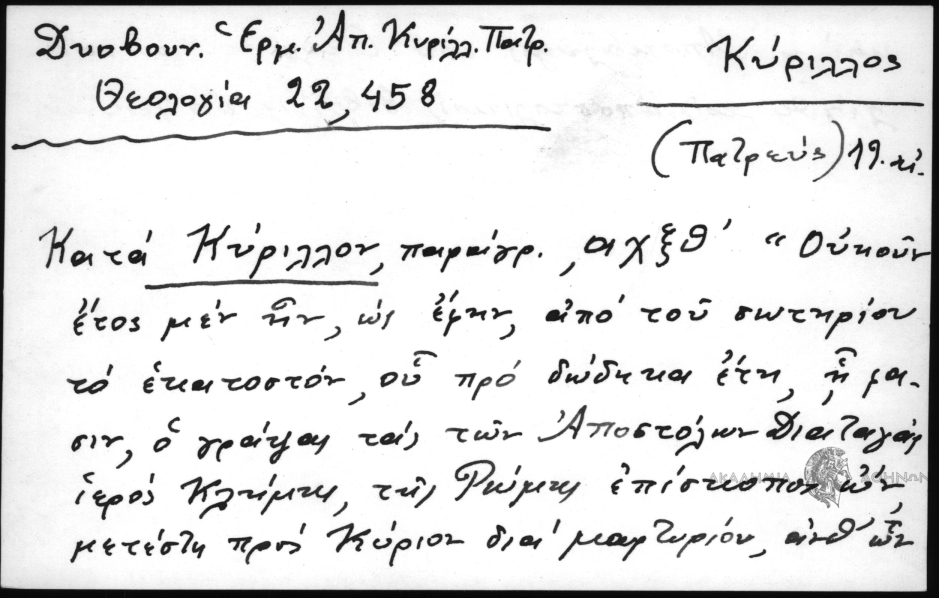 Δυοβουν. Ἑρμ. Ἀπ. Κυρίλλ. Πατρ.
Θεολογία 22, 458
Κύριλλος
(Πατρεύς) 19. αἰ.
Κατά Κύριλλον, παράγρ. ͵αχξθ' "Οὐκοῦν
ἔτος μέν ἦν, ὡς ἔφην, ἀπό τοῦ σωτηρίου
τό ἑκατοστόν, οὗ πρό δώδεκα ἔτη, ᾗ φα-
σιν, ὁ γράψας τάς τῶν Ἀποστόλων Διαταγάς
ἱερός Κλήμης, τῆς Ῥώμης ἐπίσκοπος ὤν,
μετέστη πρός Κύριον διά μαρτυρίου, ἀνθ' ὧν
ΑΚΑΔΗΜΙΑ ΑΘΗΝΩΝ